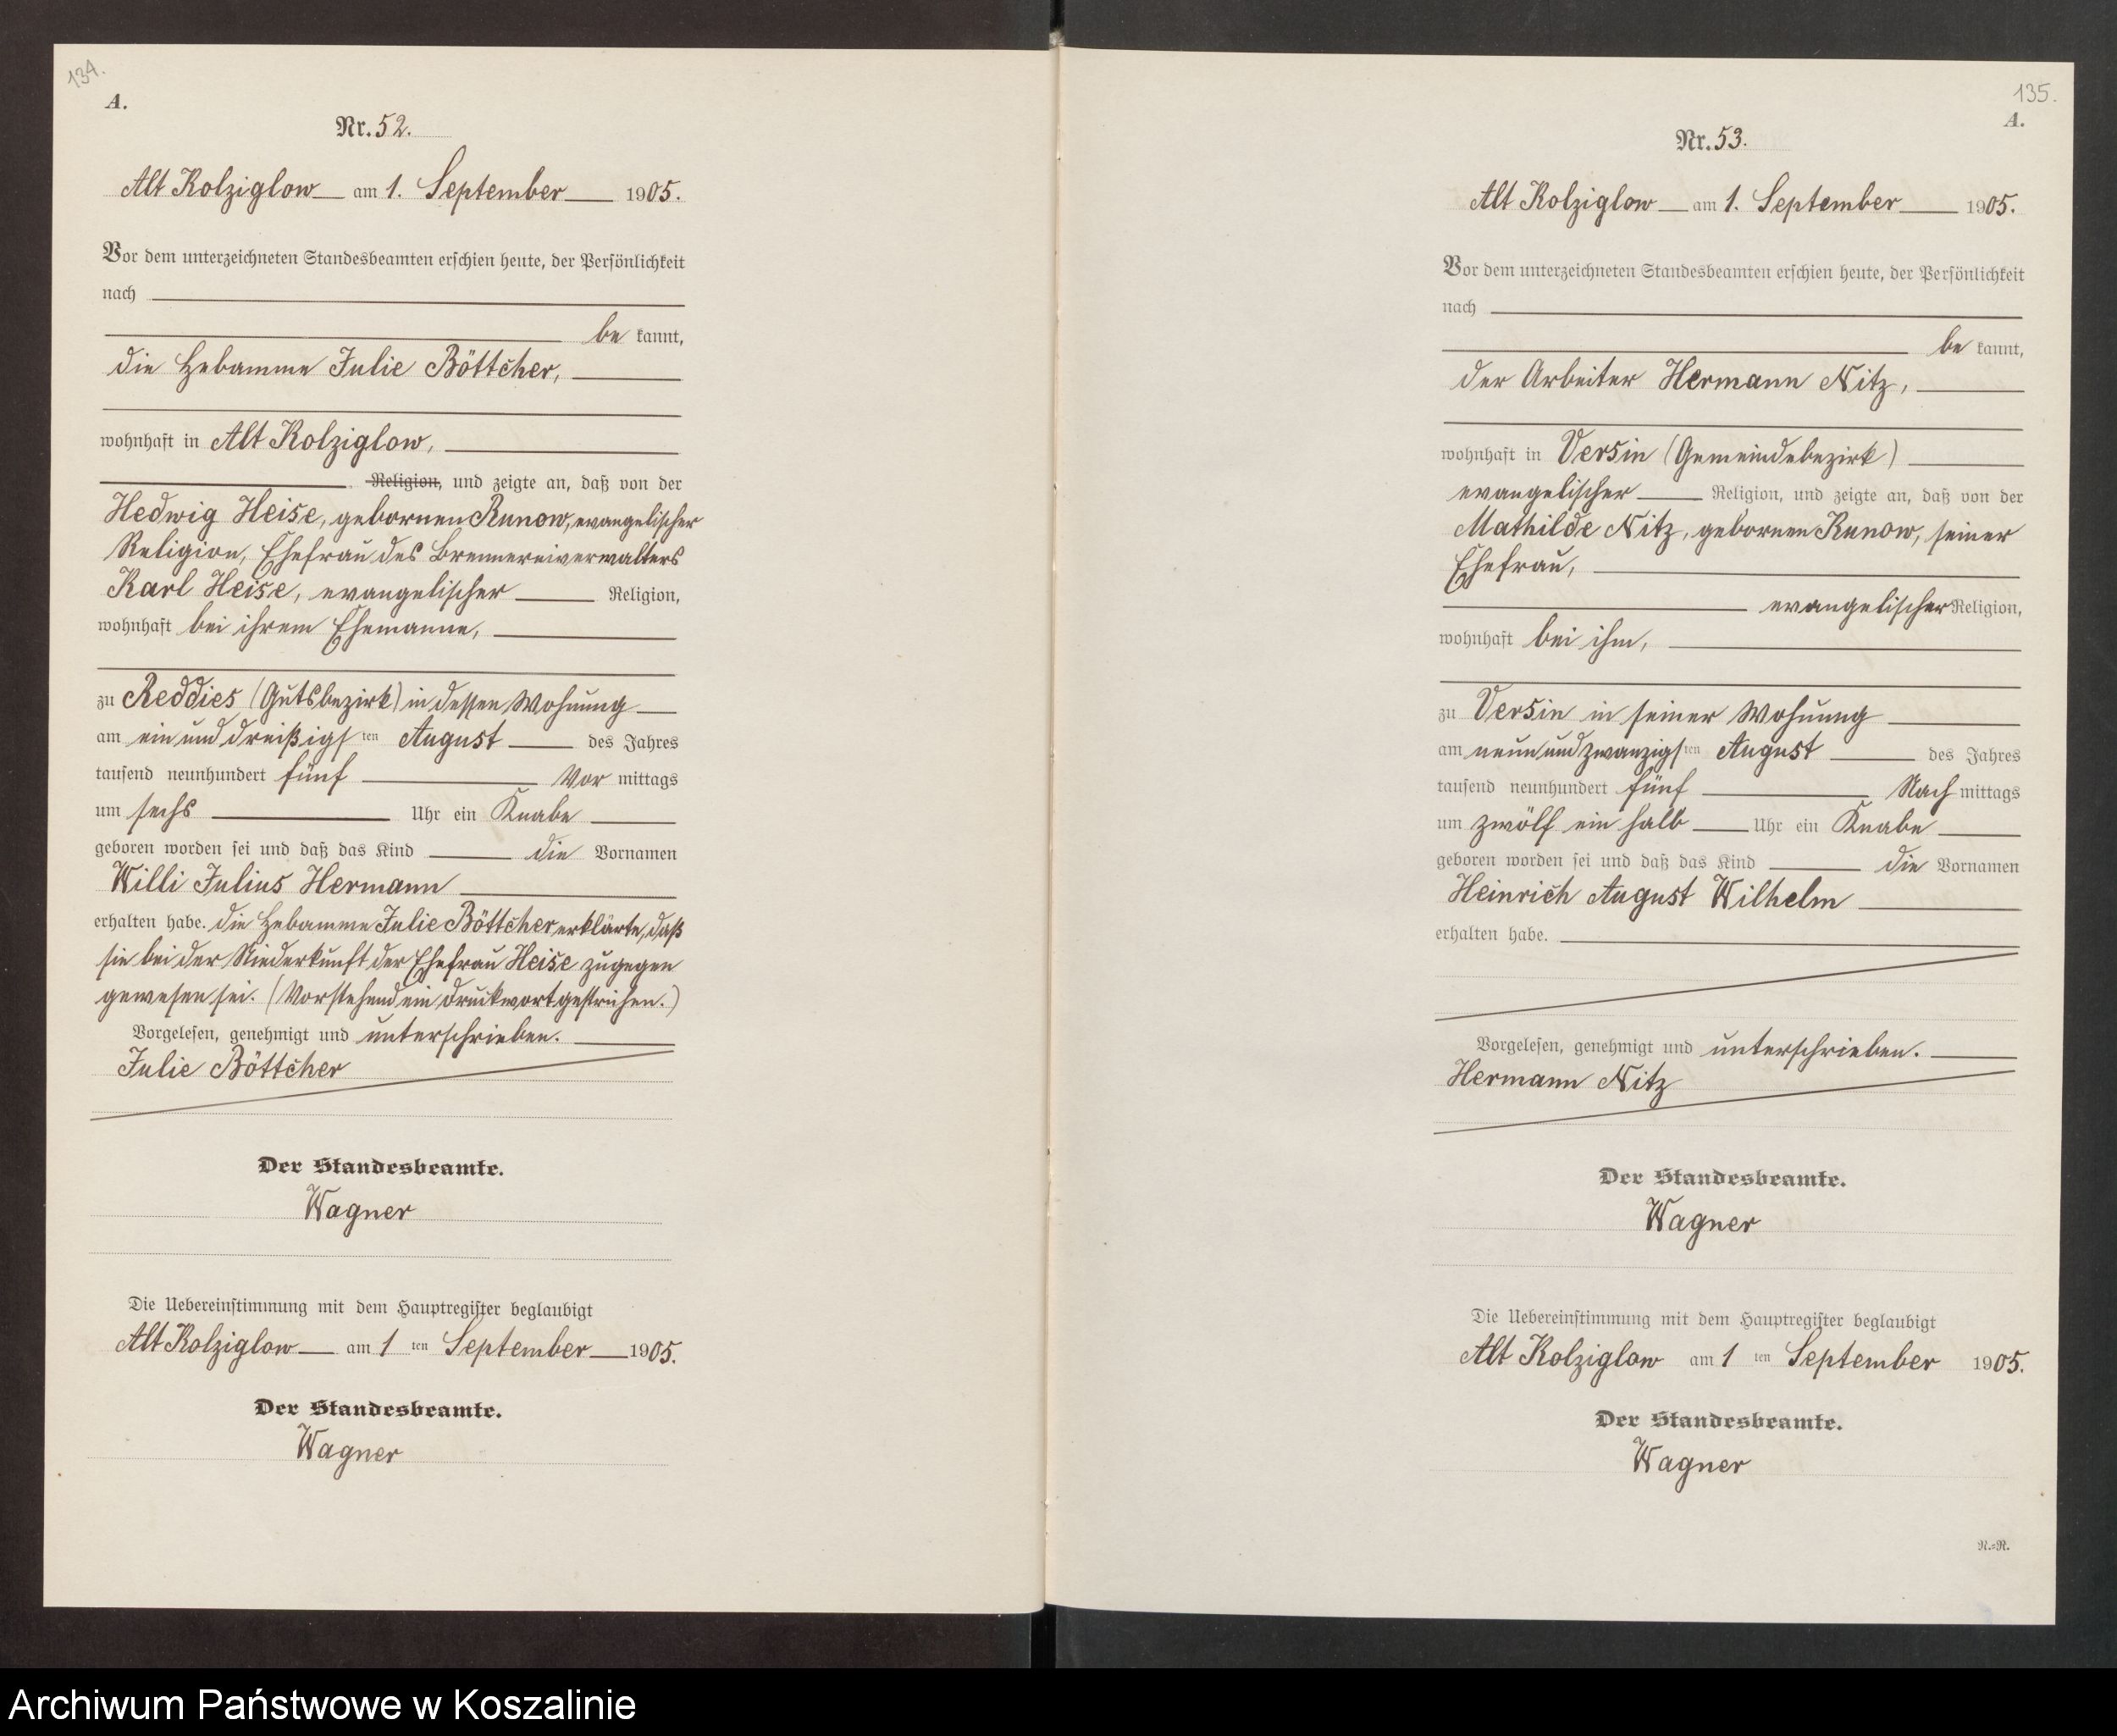 134.
A.
Nr. 52.
Alt Kolziglow am 1. September 1905.
Vor dem unterzeichneten Standesbeamten erschien heute, der Persönlichkeit
nach
be kannt,
die Hebamme Julie Böttcher,
wohnhaft in Alt Kolziglow,
Religion, und zeigte an, daß von der
Hedwig Heise, gebornen Runow, evangelischer
Religion, Ehefrau des Brennereiverwalters
Karl Heise, evangelischer Religion,
wohnhaft bei ihrem Ehemanne,
zu Reddies (Gutsbezirk) in dessen Wohnung
am ein und dreißigsten August des Jahres
tausend neunhundert fünf Vor mittags
um sechs Uhr ein Knabe
geboren worden sei und daß das Kind die Vornamen
Willi Julius Hermann
erhalten habe. Die Hebamme Julie Böttcher erklärte, daß
sie bei der Niederkunft der Ehefrau Heise zugegen
gewesen sei. (Vorstehend ein Druckwort gestrichen.)
Vorgelesen, genehmigt und unterschrieben.
Julie Böttcher
Der Standesbeamte.
Wagner
Die Uebereinstimmung mit dem Hauptregister beglaubigt
Alt Kolziglow am 1 ten September 1905.
Der Standesbeamte.
Wagner
135.
A.
Nr. 53.
Alt Kolziglow am 1. September 1905.
Vor dem unterzeichneten Standesbeamten erschien heute, der Persönlichkeit
nach
be kannt,
der Arbeiter Hermann Nitz,
wohnhaft in Versin (Gemeindebezirk)
evangelischer Religion, und zeigte an, daß von der
Mathilde Nitz, gebornen Runow, seiner
Ehefrau,
evangelischer Religion,
wohnhaft bei ihm,
zu Versin in seiner Wohnung
am neun und zwanzigsten August des Jahres
tausend neunhundert fünf Nach mittags
um zwölf ein halb Uhr ein Knabe
geboren worden sei und daß das Kind die Vornamen
Heinrich August Wilhelm
erhalten habe.
Vorgelesen, genehmigt und unterschrieben.
Hermann Nitz
Der Standesbeamte.
Wagner
Die Uebereinstimmung mit dem Hauptregister beglaubigt
Alt Kolziglow am 1 ten September 1905.
Der Standesbeamte.
Wagner
N.=R.
Archiwum Państwowe w Koszalinie